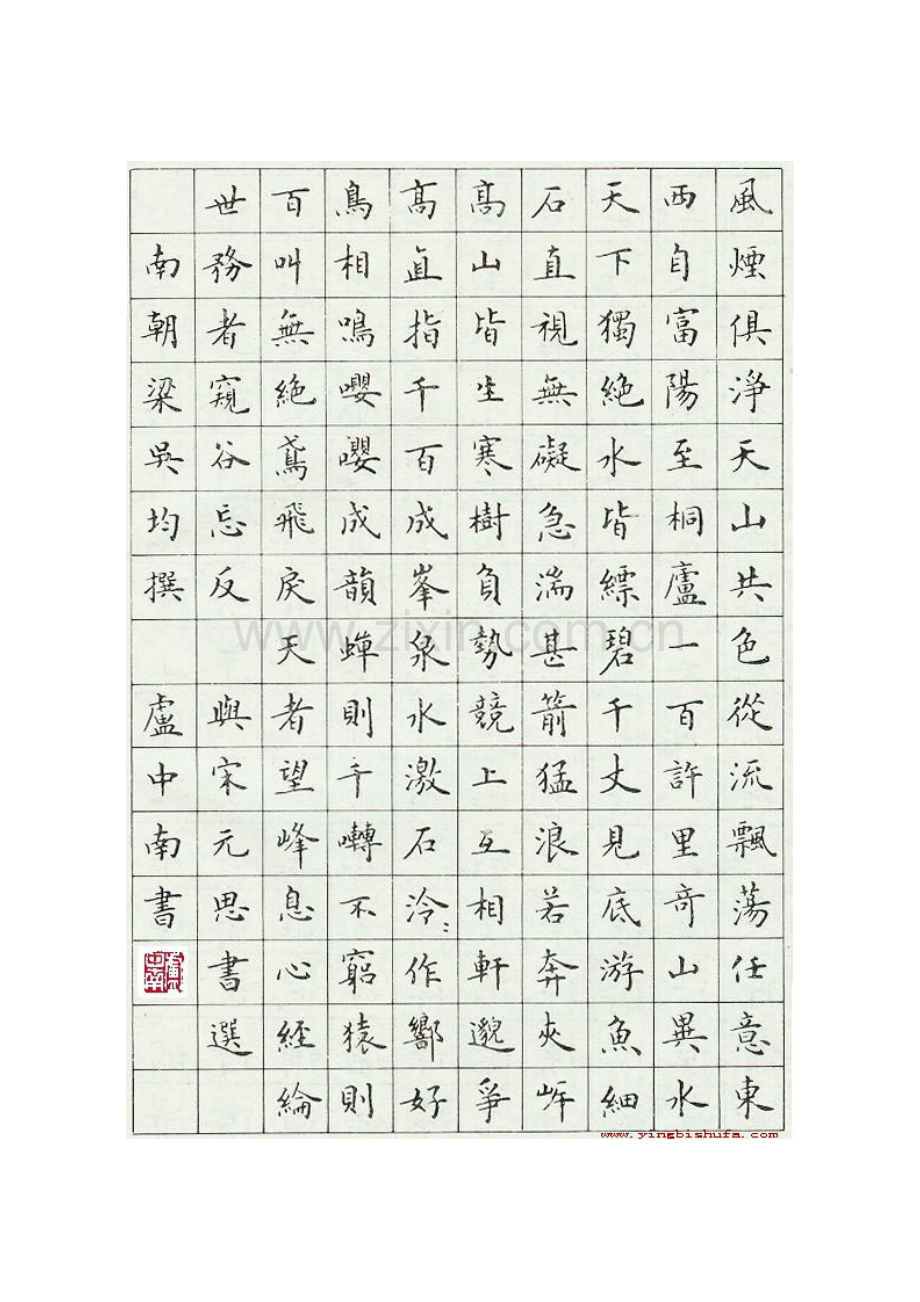 風煙俱淨天山共色從流飄蕩任意東
西自富陽至桐廬一百許里奇山異水
天下獨絕水皆縹碧千丈見底游魚細
石直視無礙急湍甚箭猛浪若奔夾岸
高山皆生寒樹負勢競上互相軒邈爭
高直指千百成峯泉水激石泠〻作響好
鳥相鳴嚶嚶成韻蟬則千囀不窮猿則
百叫無絕鳶飛戾天者望峰息心經綸
世務者窺谷忘反 與宋元思書選
南朝梁吳均撰 盧中南書
盧中南
www.zixin.com.cn
www.yingbishufa.com